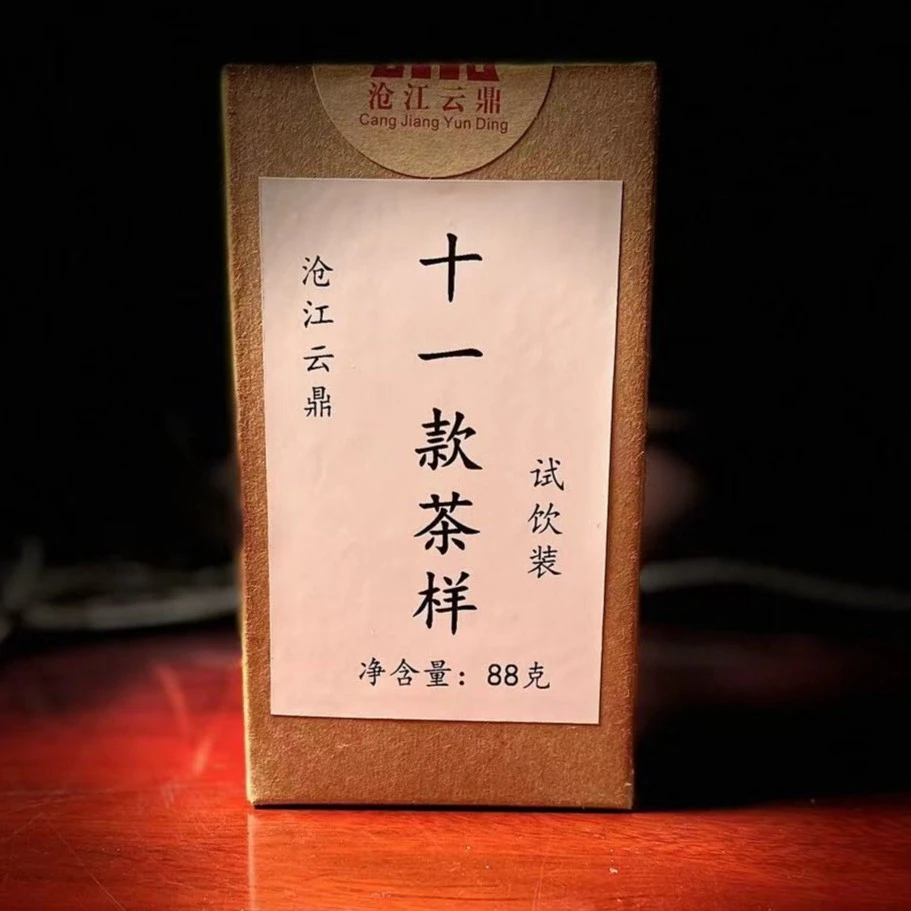 沧江云鼎
Cang Jiang Yun Ding
沧江云鼎
十一款茶样
试饮装
净含量：88克